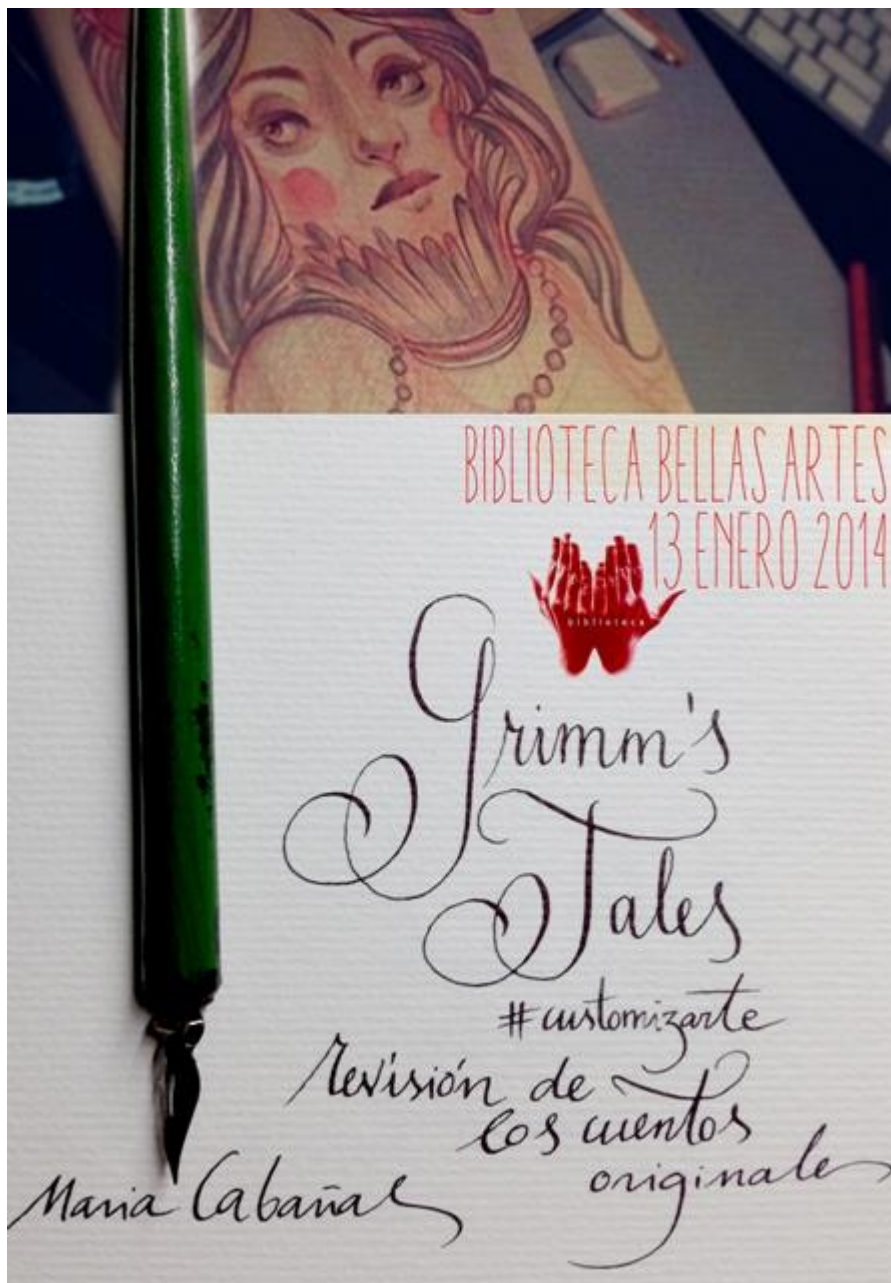 BIBLIOTECA BELLAS ARTES
13 ENERO 2014
biblioteca
Grimm's
Tales
#customizarte
revisión de
los cuentos
originales
Maria Cabañas